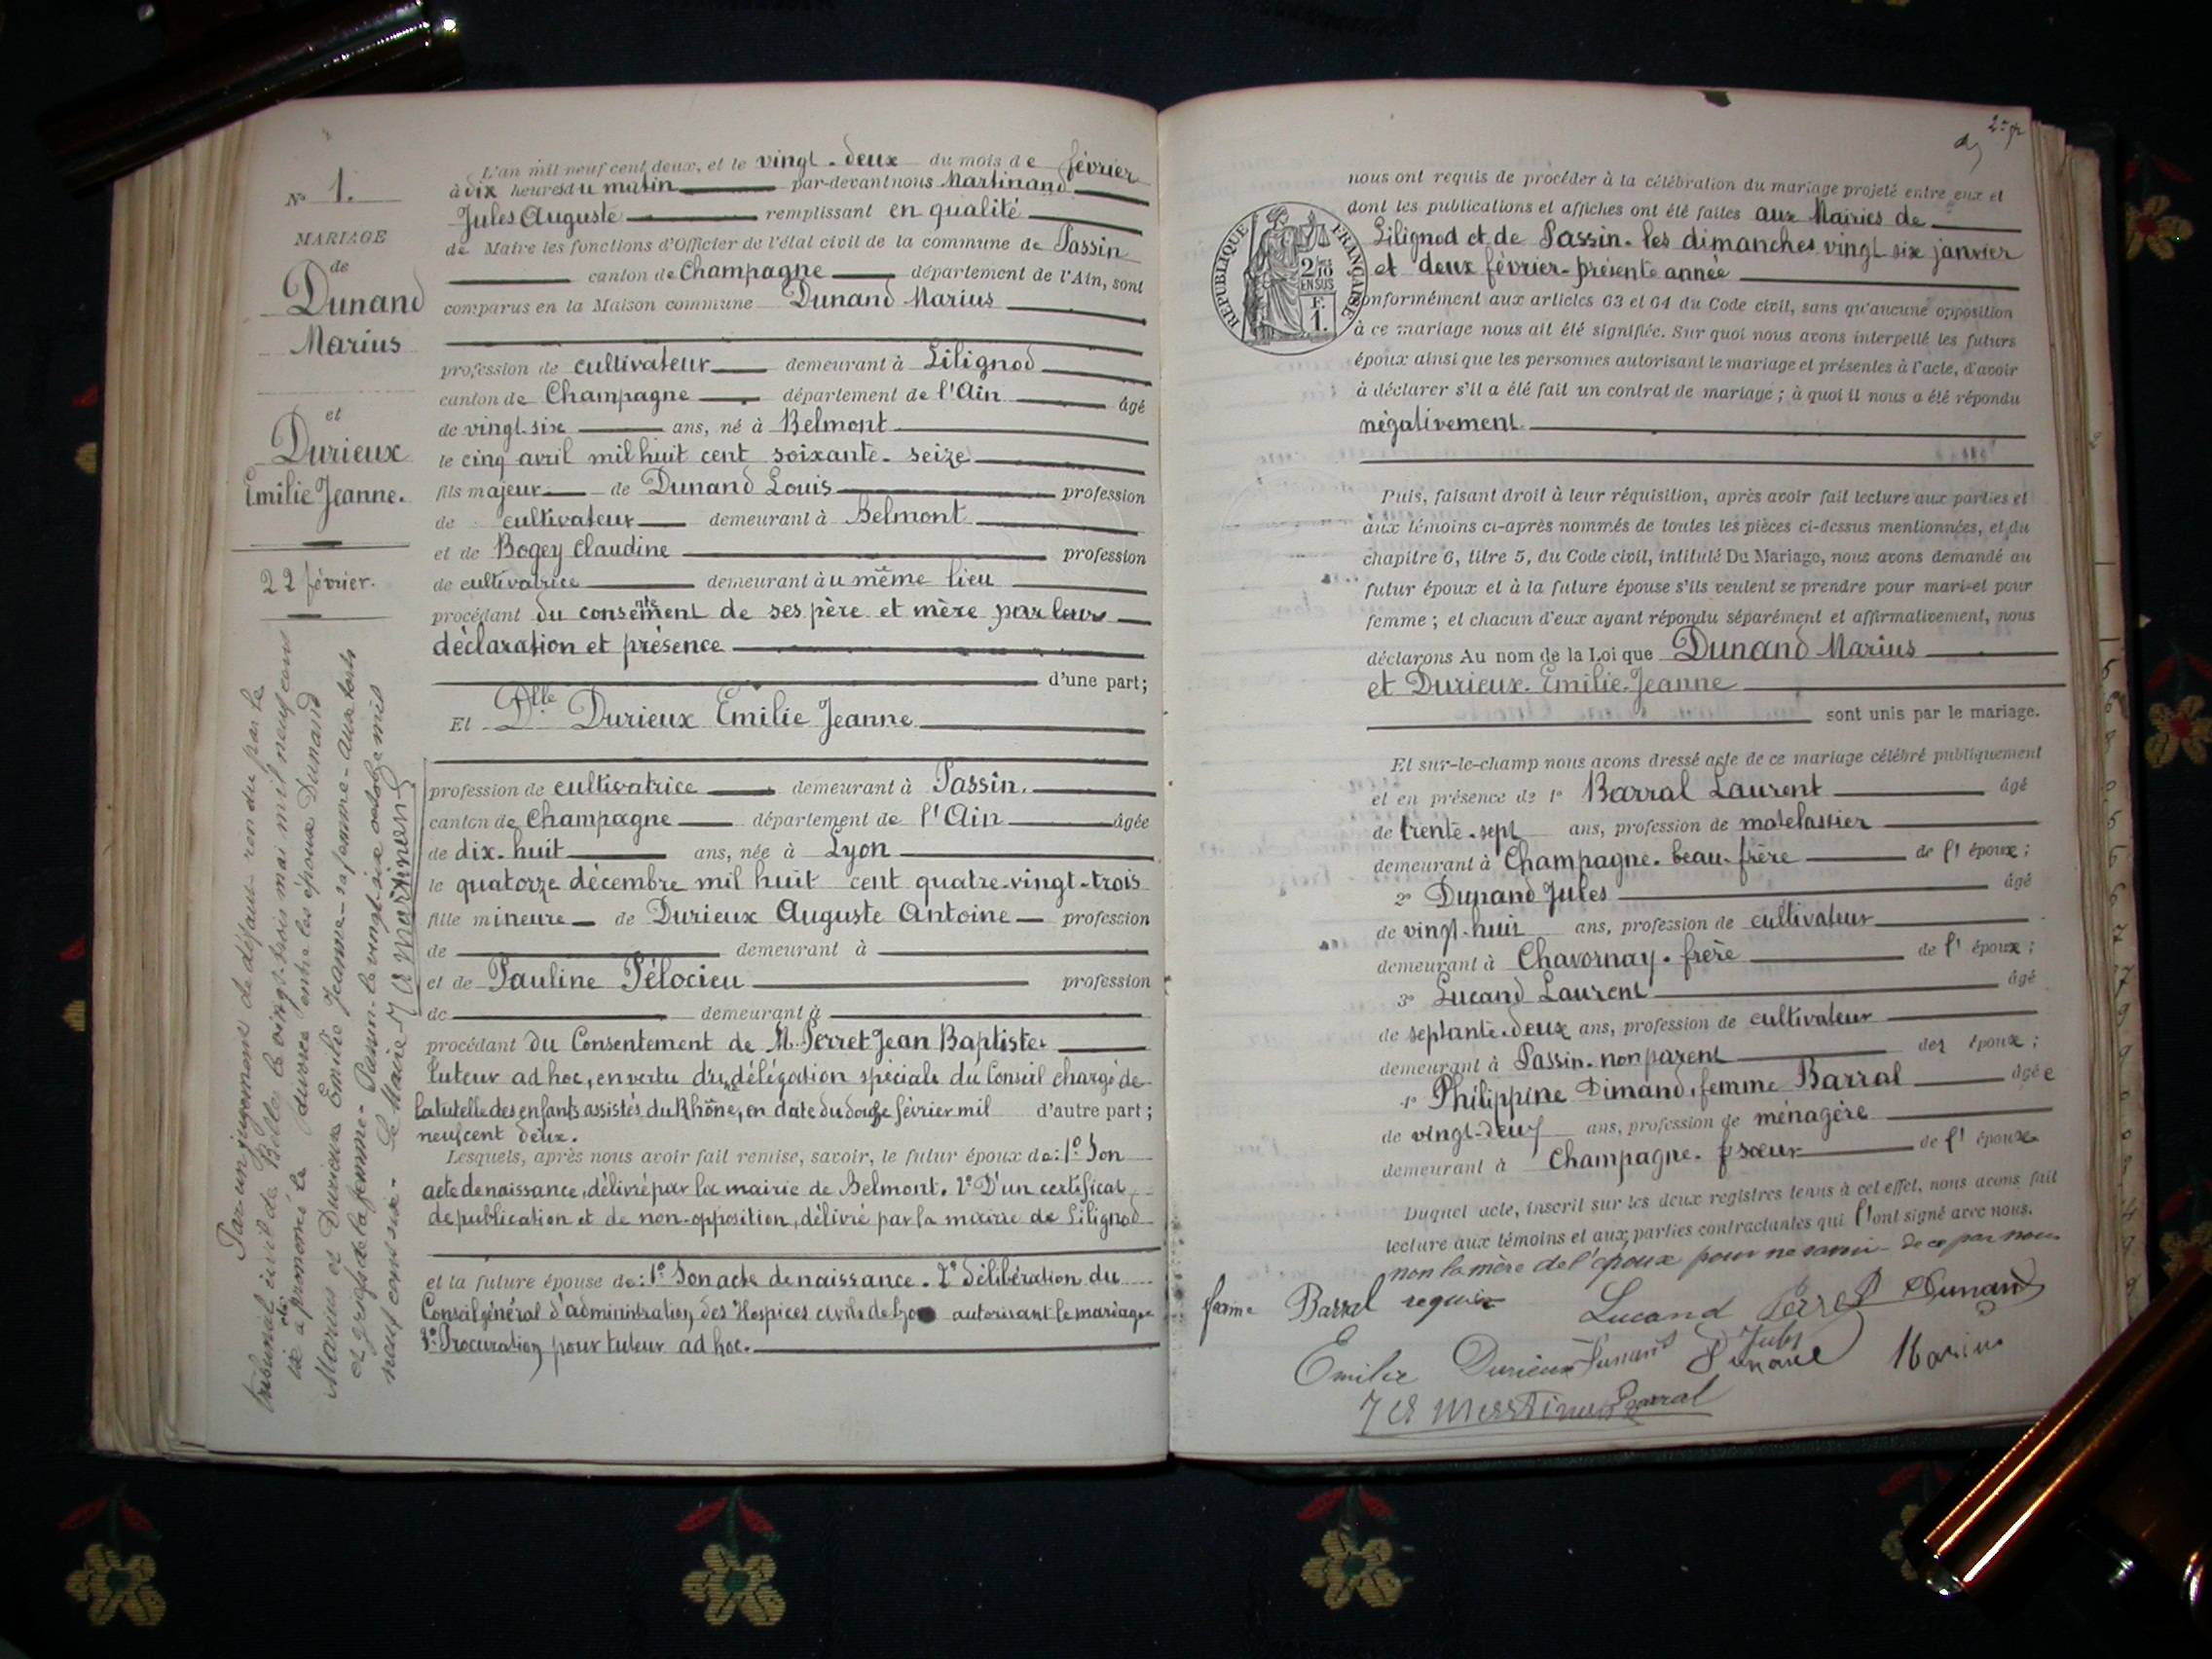 N° 1.
MARIAGE
de
Dunand
Marius
et
Durieux
Emilie Jeanne.
22 février.
Par un jugement de défaut rendu par le
tribunal civil de Belley le vingt-trois mai mil neuf cent
six a prononcé le divorce entre les époux Dunand
Marius et Durieux Emilie Jeanne - sa femme - aux torts
et griefs de la femme - Passin le vingt-six octobre mil
neuf cent six - Le Maire J A Martinand
L'an mil neuf cent deux, et le vingt-deux du mois de février
à dix heures du matin par-devant nous Martinand
Jules Auguste remplissant en qualité
de Maire les fonctions d'Officier de l'état civil de la commune de Passin
canton de Champagne département de l'Ain, sont
comparus en la Maison commune Dunand Marius
profession de cultivateur demeurant à Lilignod
canton de Champagne département de l'Ain âgé
de vingt-six ans, né à Belmont
le cinq avril mil huit cent soixante-seize
fils majeur de Dunand Louis profession
de cultivateur demeurant à Belmont
et de Bogey Claudine profession
de cultivatrice demeurant au même lieu
procédant du consentement de ses père et mère par leurs
déclaration et présence
d'une part;
Et Dlle Durieux Emilie Jeanne
profession de cultivatrice demeurant à Passin.
canton de Champagne département de l'Ain âgée
de dix-huit ans, née à Lyon
le quatorze décembre mil huit cent quatre-vingt-trois
fille mineure de Durieux Auguste Antoine profession
de demeurant à
et de Pauline Pélocieu profession
de demeurant à
procédant du Consentement de M. Perret Jean Baptiste
tuteur ad hoc, en vertu d'une délégation spéciale du Conseil chargé de
la tutelle des enfants assistés du Rhône, en date du douze février mil d'autre part;
neuf cent deux.
Lesquels, après nous avoir fait remise, savoir, le futur époux de: 1° Son
acte de naissance, délivré par la mairie de Belmont. 2° D'un certificat
de publication et de non-opposition, délivré par la mairie de Lilignod
et la future épouse de: 1° Son acte de naissance. 2° Délibération du
Conseil général d'administration des Hospices civils de Lyon autorisant le mariage
3° Procuration pour tuteur ad hoc.
RÉPUBLIQUE FRANÇAISE
2/10
EN SUS
F.
1.
nous ont requis de procéder à la célébration du mariage projeté entre eux et
dont les publications et affiches ont été faites aux Mairies de
Lilignod et de Passin. les dimanches vingt six janvier
et deux février présente année
conformément aux articles 63 et 64 du Code civil, sans qu'aucune opposition
à ce mariage nous ait été signifiée. Sur quoi nous avons interpellé les futurs
époux ainsi que les personnes autorisant le mariage et présentes à l'acte, d'avoir
à déclarer s'il a été fait un contrat de mariage; à quoi il nous a été répondu
négativement.
Puis, faisant droit à leur réquisition, après avoir fait lecture aux parties et
aux témoins ci-après nommés de toutes les pièces ci-dessus mentionnées, et du
chapitre 6, titre 5, du Code civil, intitulé Du Mariage, nous avons demandé au
futur époux et à la future épouse s'ils veulent se prendre pour mari et pour
femme; et chacun d'eux ayant répondu séparément et affirmativement, nous
déclarons Au nom de la Loi que Dunand Marius
et Durieux Emilie Jeanne
sont unis par le mariage.
Et sur-le-champ nous avons dressé acte de ce mariage célébré publiquement
et en présence de 1° Barral Laurent âgé
de trente-sept ans, profession de matelassier
demeurant à Champagne. beau-frère de l'époux;
2° Dunand Jules âgé
de vingt-huit ans, profession de cultivateur
demeurant à Chavornay. frère de l'époux;
3° Lucand Laurent âgé
de septante-deux ans, profession de cultivateur
demeurant à Passin. non parent des époux;
4° Philippine Dimand, femme Barral âgée
de vingt-deux ans, profession de ménagère
demeurant à Champagne. sœur de l'époux
Duquel acte, inscrit sur les deux registres tenus à cet effet, nous avons fait
lecture aux témoins et aux parties contractantes qui l'ont signé avec nous.
non la mère de l'époux pour ne savoir de ce par nous
femme Barral requise Lucand Perret Dunand
Emilie Durieux Dunand Jules Dunand Marius
J A Martinand Barral